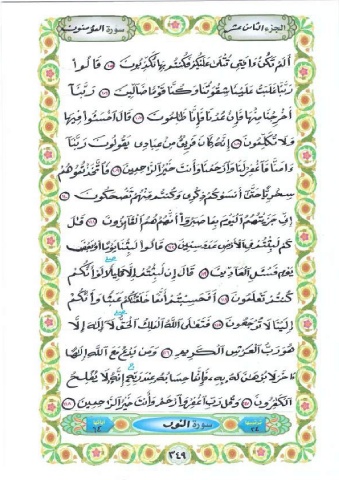 الجزء الثامن عشر
سورة المؤمنون
ألم تكن ءايتى تتلى عليكم فكنتم بها تكذبون ١٠٥ قالوا
ربنا غلبت علينا شقوتنا وكنا قوما ضالين ١٠٦ ربنا
أخرجنا منها فإن عدنا فإنا ظلمون ١٠٧ قال اخسئوا فيها
ولا تكلمون ١٠٨ إنه كان فريق من عبادى يقولون ربنا
ءامنا فاغفر لنا وارحمنا وأنت خير الرحمين ١٠٩ فاتخذتموهم
سخريا حتى أنسوكم ذكرى وكنتم منهم تضحكون ١١٠
إنى جزيتهم اليوم بما صبروا أنهم هم الفائزون ١١١ قل
كم لبثتم فى الأرض عدد سنين ١١٢ قالوا لبثنا يوما أو بعض
يوم فسئل العادين ١١٣ قل إن لبثتم إلا قليلا لو أنكم
كنتم تعلمون ١١٤ أفحسبتم أنما خلقنكم عبثا وأنكم
إلينا لا ترجعون ١١٥ فتعلى الله الملك الحق لا إله إلا
هو رب العرش الكريم ١١٦ ومن يدع مع الله إلها
ءاخر لا برهن له به فإنما حسابه عند ربه إنه لا يفلح
الكفرون ١١٧ وقل رب اغفر وارحم وأنت خير الرحمين ١١٨
سورة النور
٢٤
٦٤
٣٤٩